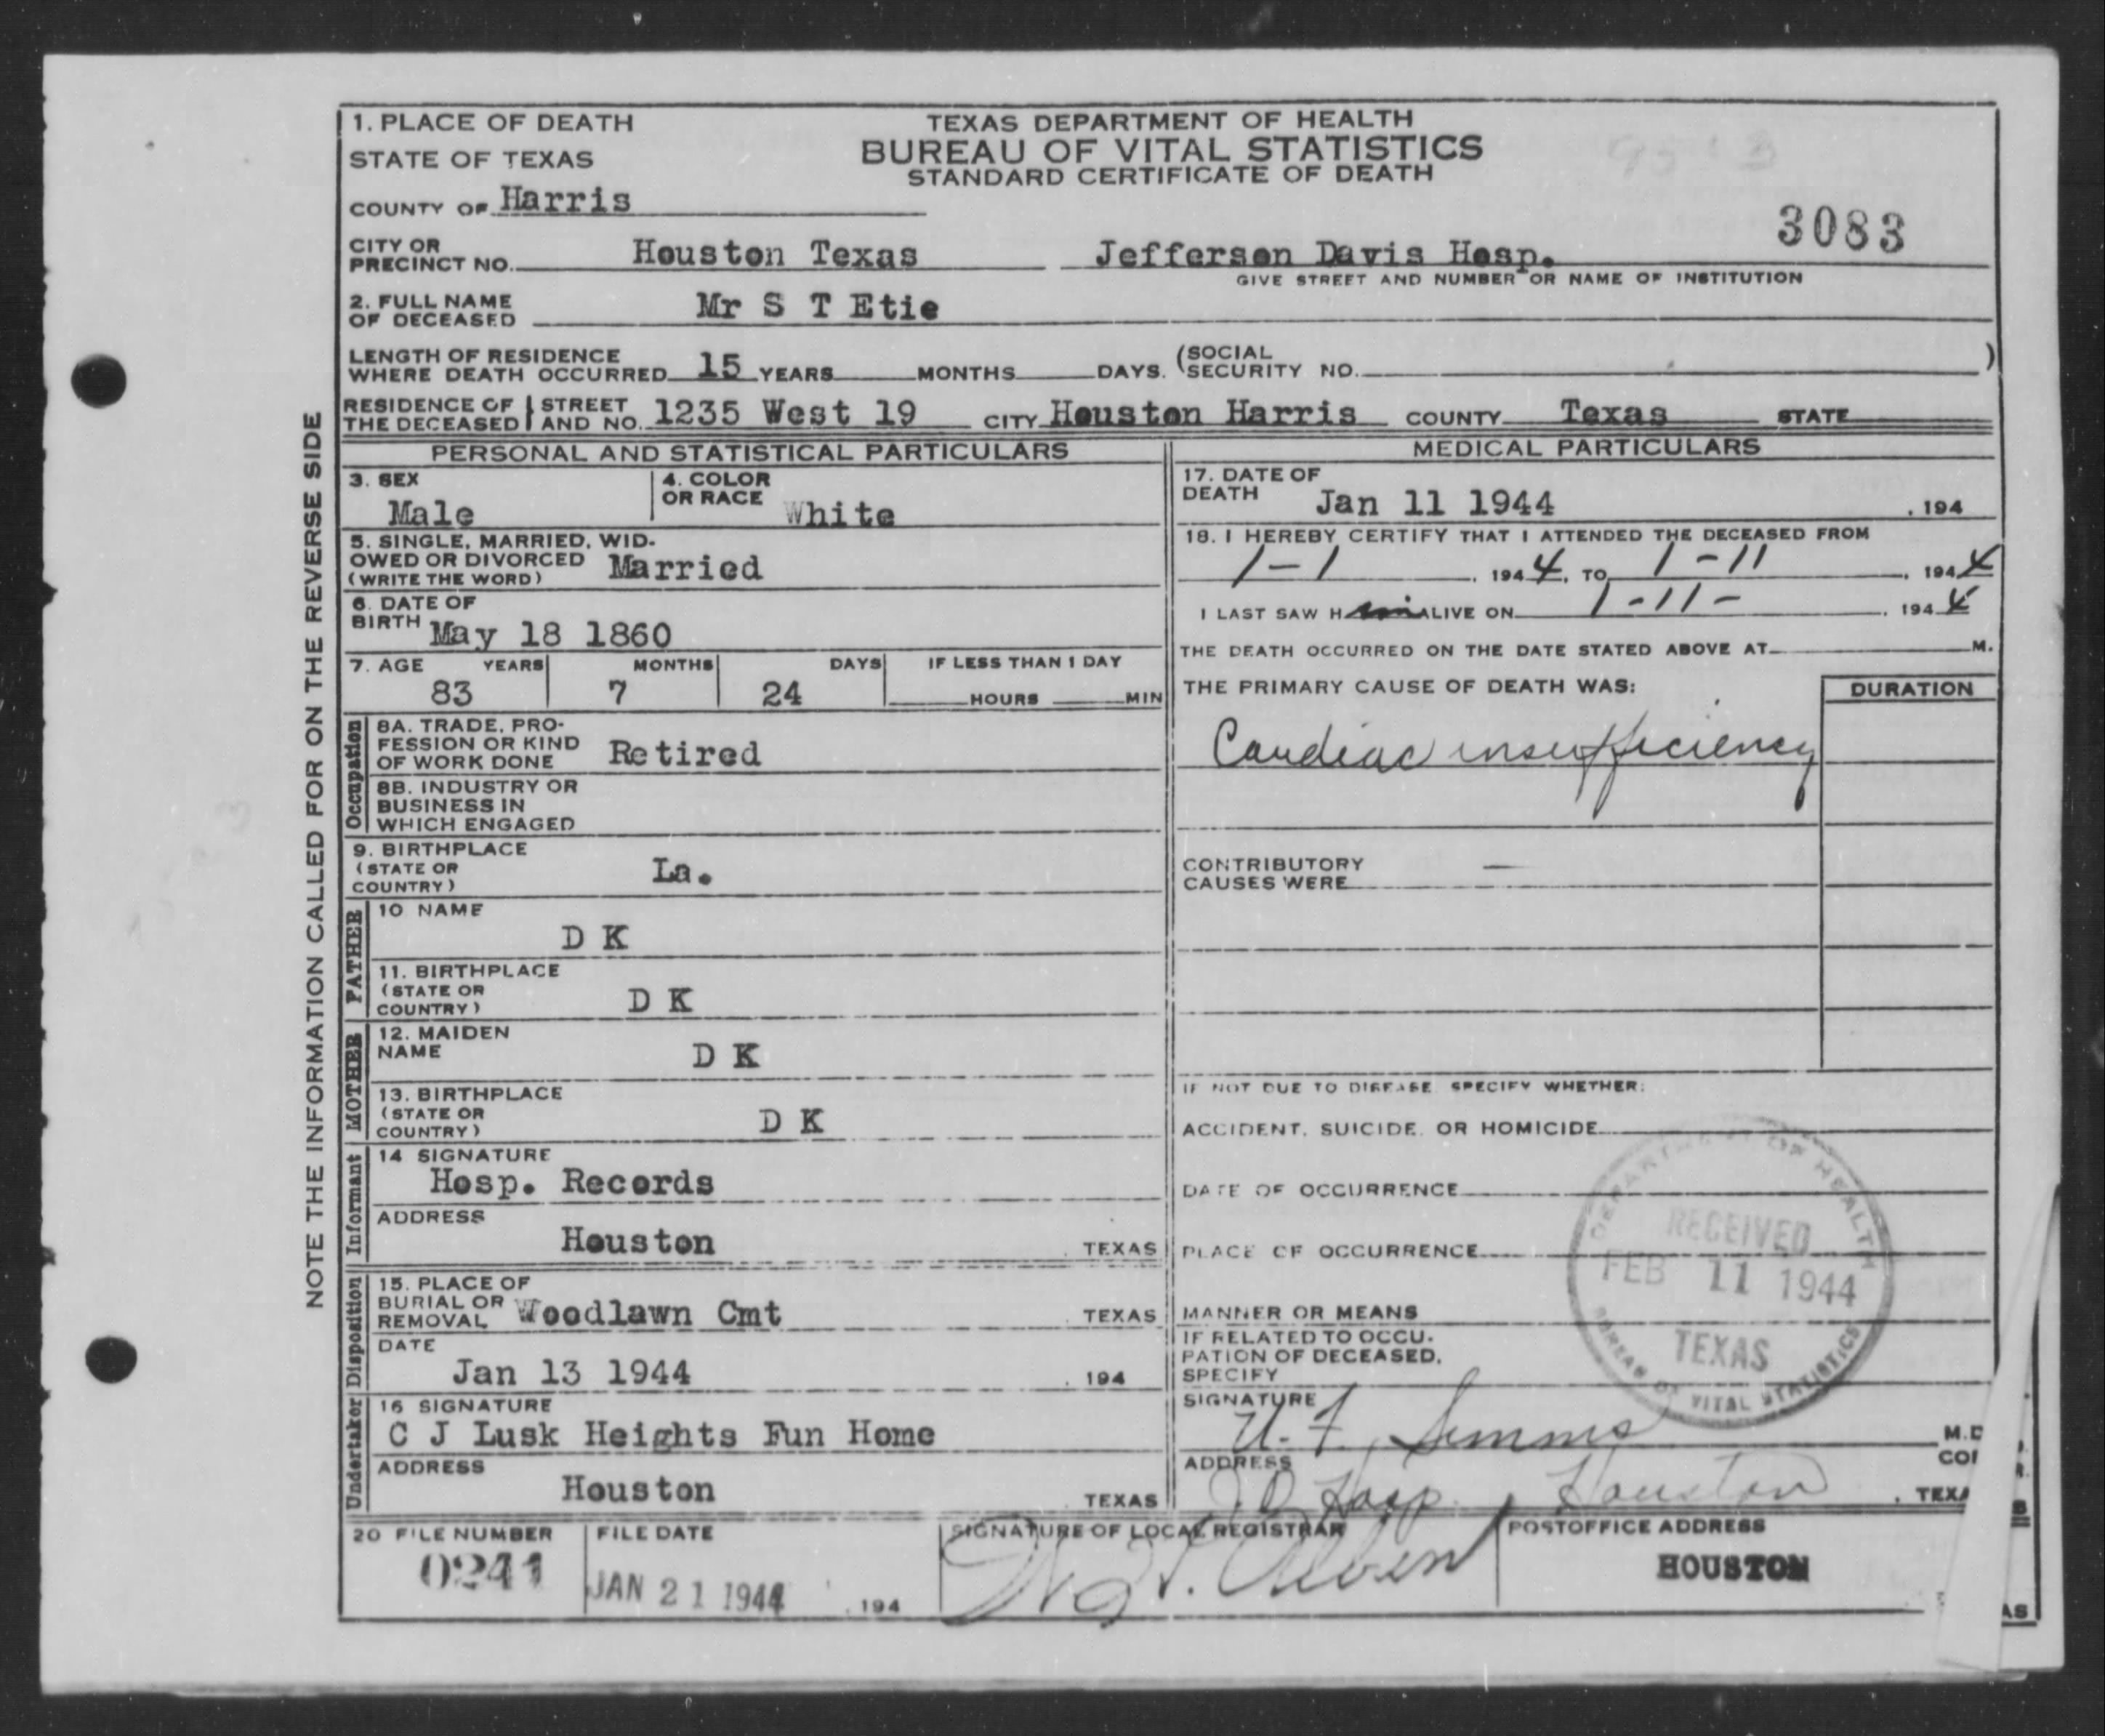 1. PLACE OF DEATH
STATE OF TEXAS
COUNTY OF Harris
TEXAS DEPARTMENT OF HEALTH
BUREAU OF VITAL STATISTICS
STANDARD CERTIFICATE OF DEATH
3083
CITY OR PRECINCT NO. Houston Texas Jefferson Davis Hosp.
GIVE STREET AND NUMBER OR NAME OF INSTITUTION
2. FULL NAME OF DECEASED Mr S T Etie
LENGTH OF RESIDENCE WHERE DEATH OCCURRED 15 YEARS MONTHS DAYS. (SOCIAL SECURITY NO. )
RESIDENCE OF THE DECEASED STREET AND NO. 1235 West 19 CITY Houston Harris COUNTY Texas STATE
NOTE THE INFORMATION CALLED FOR ON THE REVERSE SIDE
PERSONAL AND STATISTICAL PARTICULARS
3. SEX
Male
4. COLOR OR RACE White
5. SINGLE, MARRIED, WID-
OWED OR DIVORCED Married
(WRITE THE WORD)
6. DATE OF
BIRTH May 18 1860
7. AGE YEARS MONTHS DAYS IF LESS THAN 1 DAY
83 7 24 HOURS MIN
Occupation
8A. TRADE, PRO-
FESSION OR KIND
OF WORK DONE Retired
8B. INDUSTRY OR
BUSINESS IN
WHICH ENGAGED
9. BIRTHPLACE
(STATE OR
COUNTRY) La.
FATHER
10 NAME
D K
11. BIRTHPLACE
(STATE OR
COUNTRY) D K
MOTHER
12. MAIDEN
NAME D K
13. BIRTHPLACE
(STATE OR
COUNTRY) D K
Informant
14 SIGNATURE
Hosp. Records
ADDRESS
Houston TEXAS
Disposition
15. PLACE OF
BURIAL OR
REMOVAL Woodlawn Cmt TEXAS
DATE
Jan 13 1944 . 194
Undertaker
16 SIGNATURE
C J Lusk Heights Fun Home
ADDRESS
Houston TEXAS
MEDICAL PARTICULARS
17. DATE OF
DEATH Jan 11 1944 , 194
18. I HEREBY CERTIFY THAT I ATTENDED THE DECEASED FROM
1-1 , 1944, TO 1-11 , 1944
I LAST SAW H im ALIVE ON 1-11- , 1944
THE DEATH OCCURRED ON THE DATE STATED ABOVE AT M.
THE PRIMARY CAUSE OF DEATH WAS: DURATION
Cardiac insufficiency
CONTRIBUTORY
CAUSES WERE —
IF NOT DUE TO DISEASE SPECIFY WHETHER:
ACCIDENT, SUICIDE, OR HOMICIDE
DATE OF OCCURRENCE
PLACE OF OCCURRENCE
MANNER OR MEANS
IF RELATED TO OCCU-
PATION OF DECEASED,
SPECIFY
DEPARTMENT OF HEALTH
RECEIVED
FEB 11 1944
TEXAS
BUREAU OF VITAL STATISTICS
SIGNATURE
U. F. Simms M.D
COR
ADDRESS
J D Hosp. Houston , TEXA
20 FILE NUMBER
0241
FILE DATE
JAN 21 1944 , 194
SIGNATURE OF LOCAL REGISTRAR
POSTOFFICE ADDRESS
HOUSTON
AS